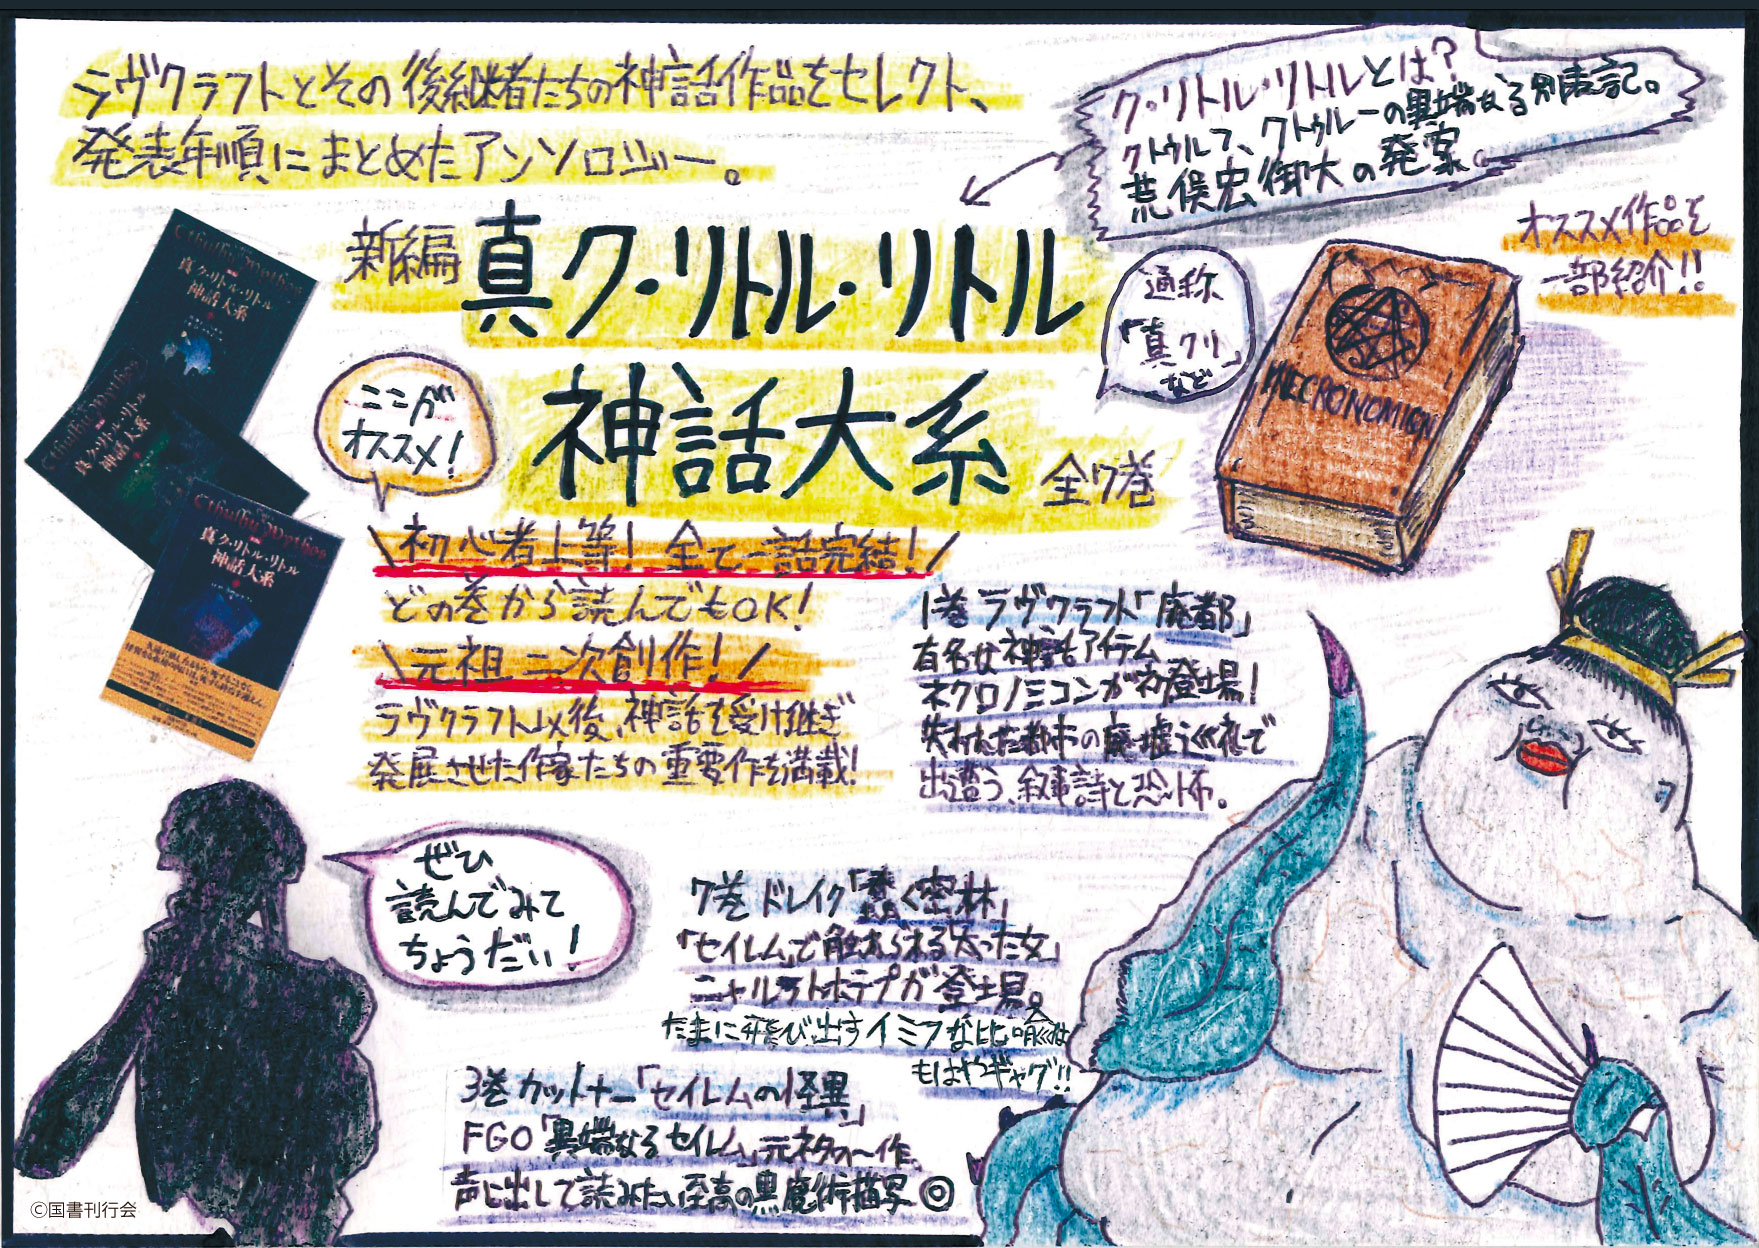 ラヴクラフトとその後継者たちの神話作品をセレクト、
発表年順にまとめたアンソロジー。
ク・リトル・リトルとは?
クトゥルフ、クトゥルーの異端なる別表記。
荒俣宏御大の発案。
新編
真ク・リトル・リトル
神話大系
全7巻
通称
「真クリ」
など
オススメ作品を
一部紹介!!
NECRONOMICON
Cthulhu Mythos
真ク・リトル・リトル
神話大系
Cthulhu Mythos
真ク・リトル・リトル
神話大系
Cthulhu Mythos
真ク・リトル・リトル
神話大系
ここが
オススメ!
\初心者上等! 全て一話完結!/
どの巻から読んでもOK!
\元祖二次創作!/
ラヴクラフト以後、神話を受け継ぎ
発展させた作家たちの重要作を満載!
1巻 ラヴクラフト「廃都」
有名な神話アイテム
ネクロノミコンが初登場!
失われた都市の廃墟巡礼で
出遭う、叙事詩と恐怖。
ぜひ
読んでみて
ちょうだい!
7巻 ドレイク「蠢く密林」
「セイレム」で触れられる太った女」
ニャルラトホテプが登場。
たまに飛び出すイミフな比喩は
もはやギャグ!!
3巻 カットナー「セイレムの怪異」
FGO「異端なるセイレム」元ネタの一作。
声に出して読みたい至高の黒魔術描写◎
©国書刊行会